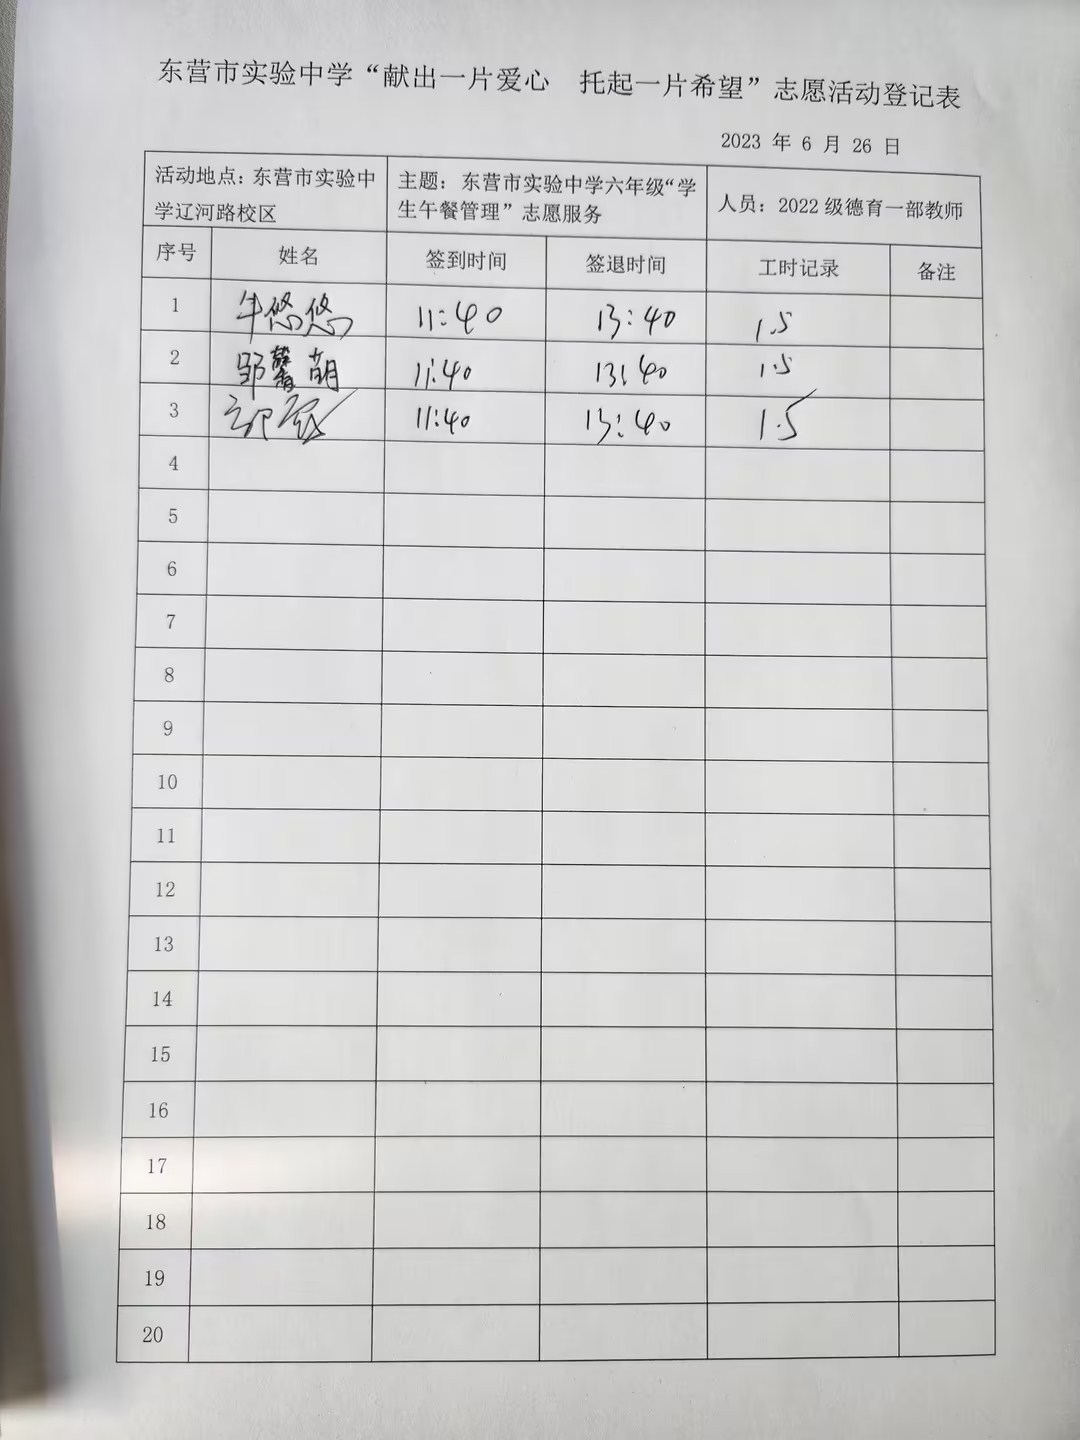 东营市实验中学“献出一片爱心 托起一片希望”志愿活动登记表
2023 年 6 月 26 日
活动地点：东营市实验中学辽河路校区 主题：东营市实验中学六年级“学生午餐管理”志愿服务 人员：2022 级德育一部教师
序号 姓名 签到时间 签退时间 工时记录 备注
1 牛悠悠 11:40 13:40 1.5
2 邹馨萌 11:40 13:40 1.5
3 11:40 13:40 1.5
4
5
6
7
8
9
10
11
12
13
14
15
16
17
18
19
20